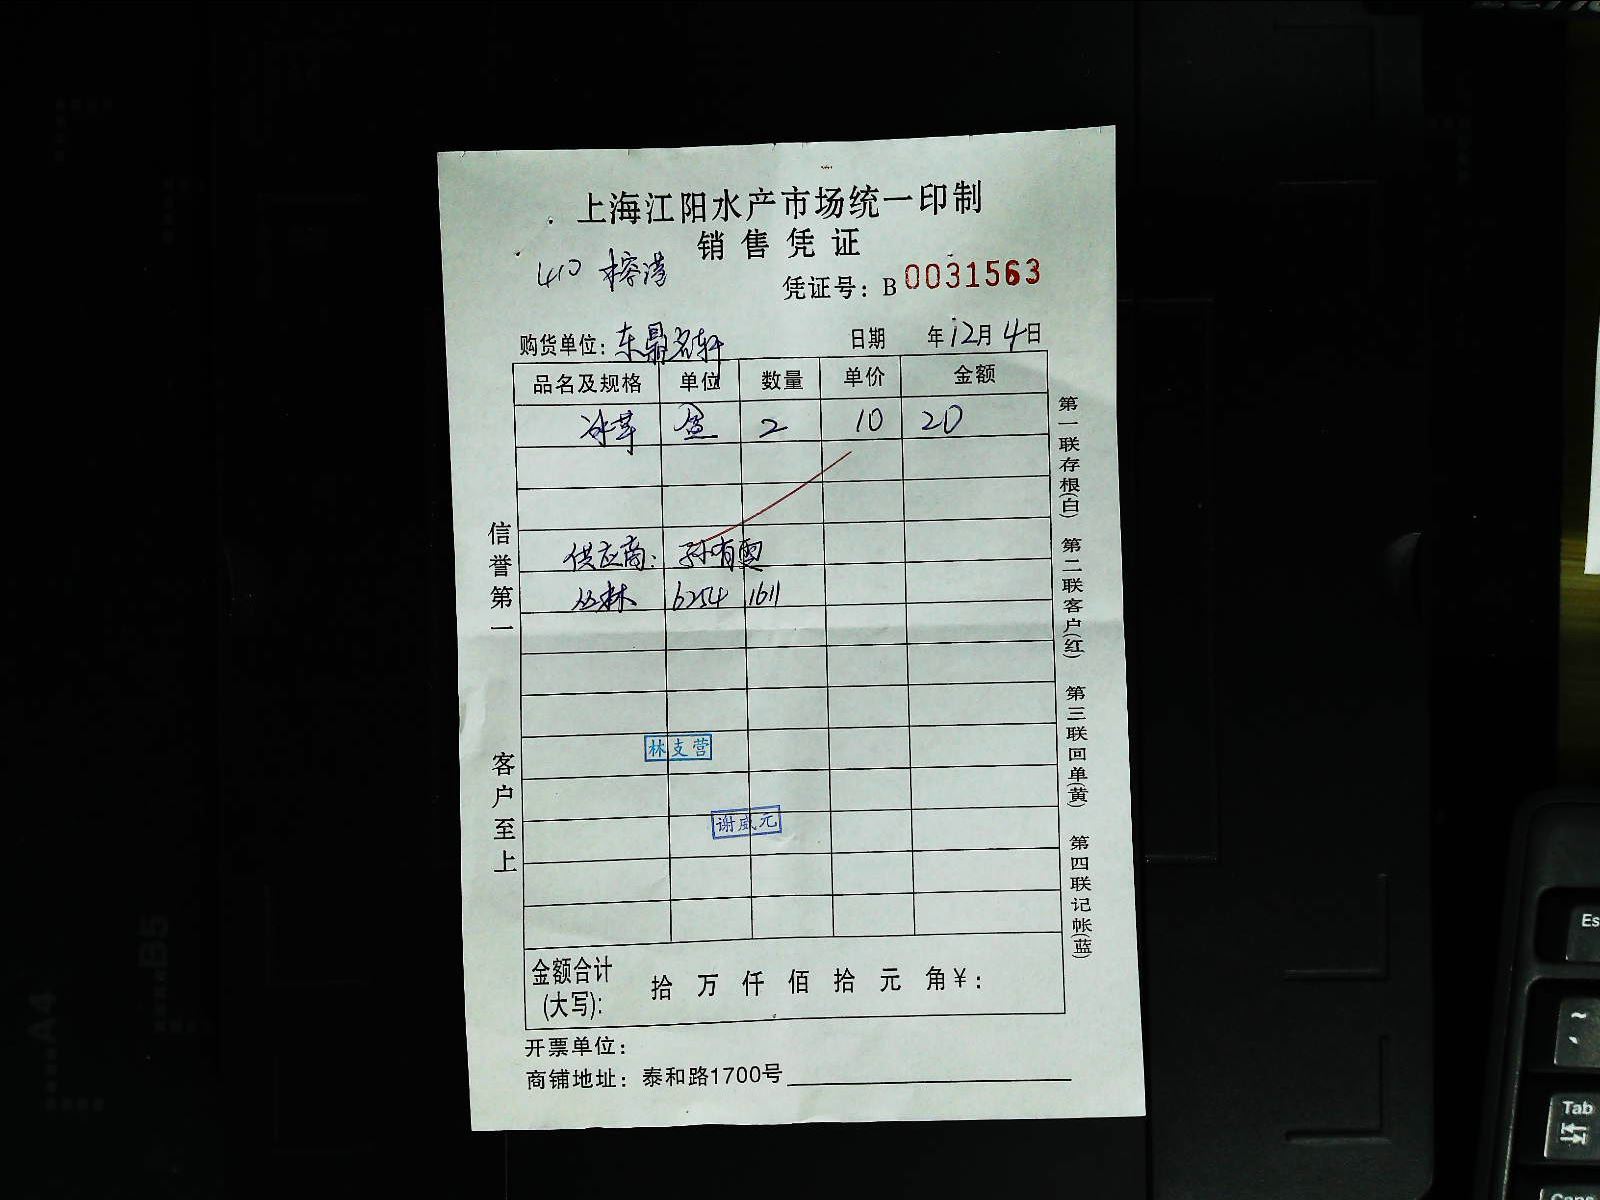 上海江阳水产市场统一印制
销售凭证
410 榕港
凭证号：B 0031563
购货单位：东鼎名轩 日期 年12月4日
品名及规格 单位 数量 单价 金额
冰草 盒 2 10 20
供应商：孙有雷
丛林 6254 1611
林支营
谢威元
金额合计(大写)： 拾 万 仟 佰 拾 元 角￥：
开票单位：
商铺地址：泰和路1700号
信誉第一 客户至上
第一联存根(白) 第二联客户(红) 第三联回单(黄) 第四联记帐(蓝)
Es
~
Tab
Caps
B5
A4